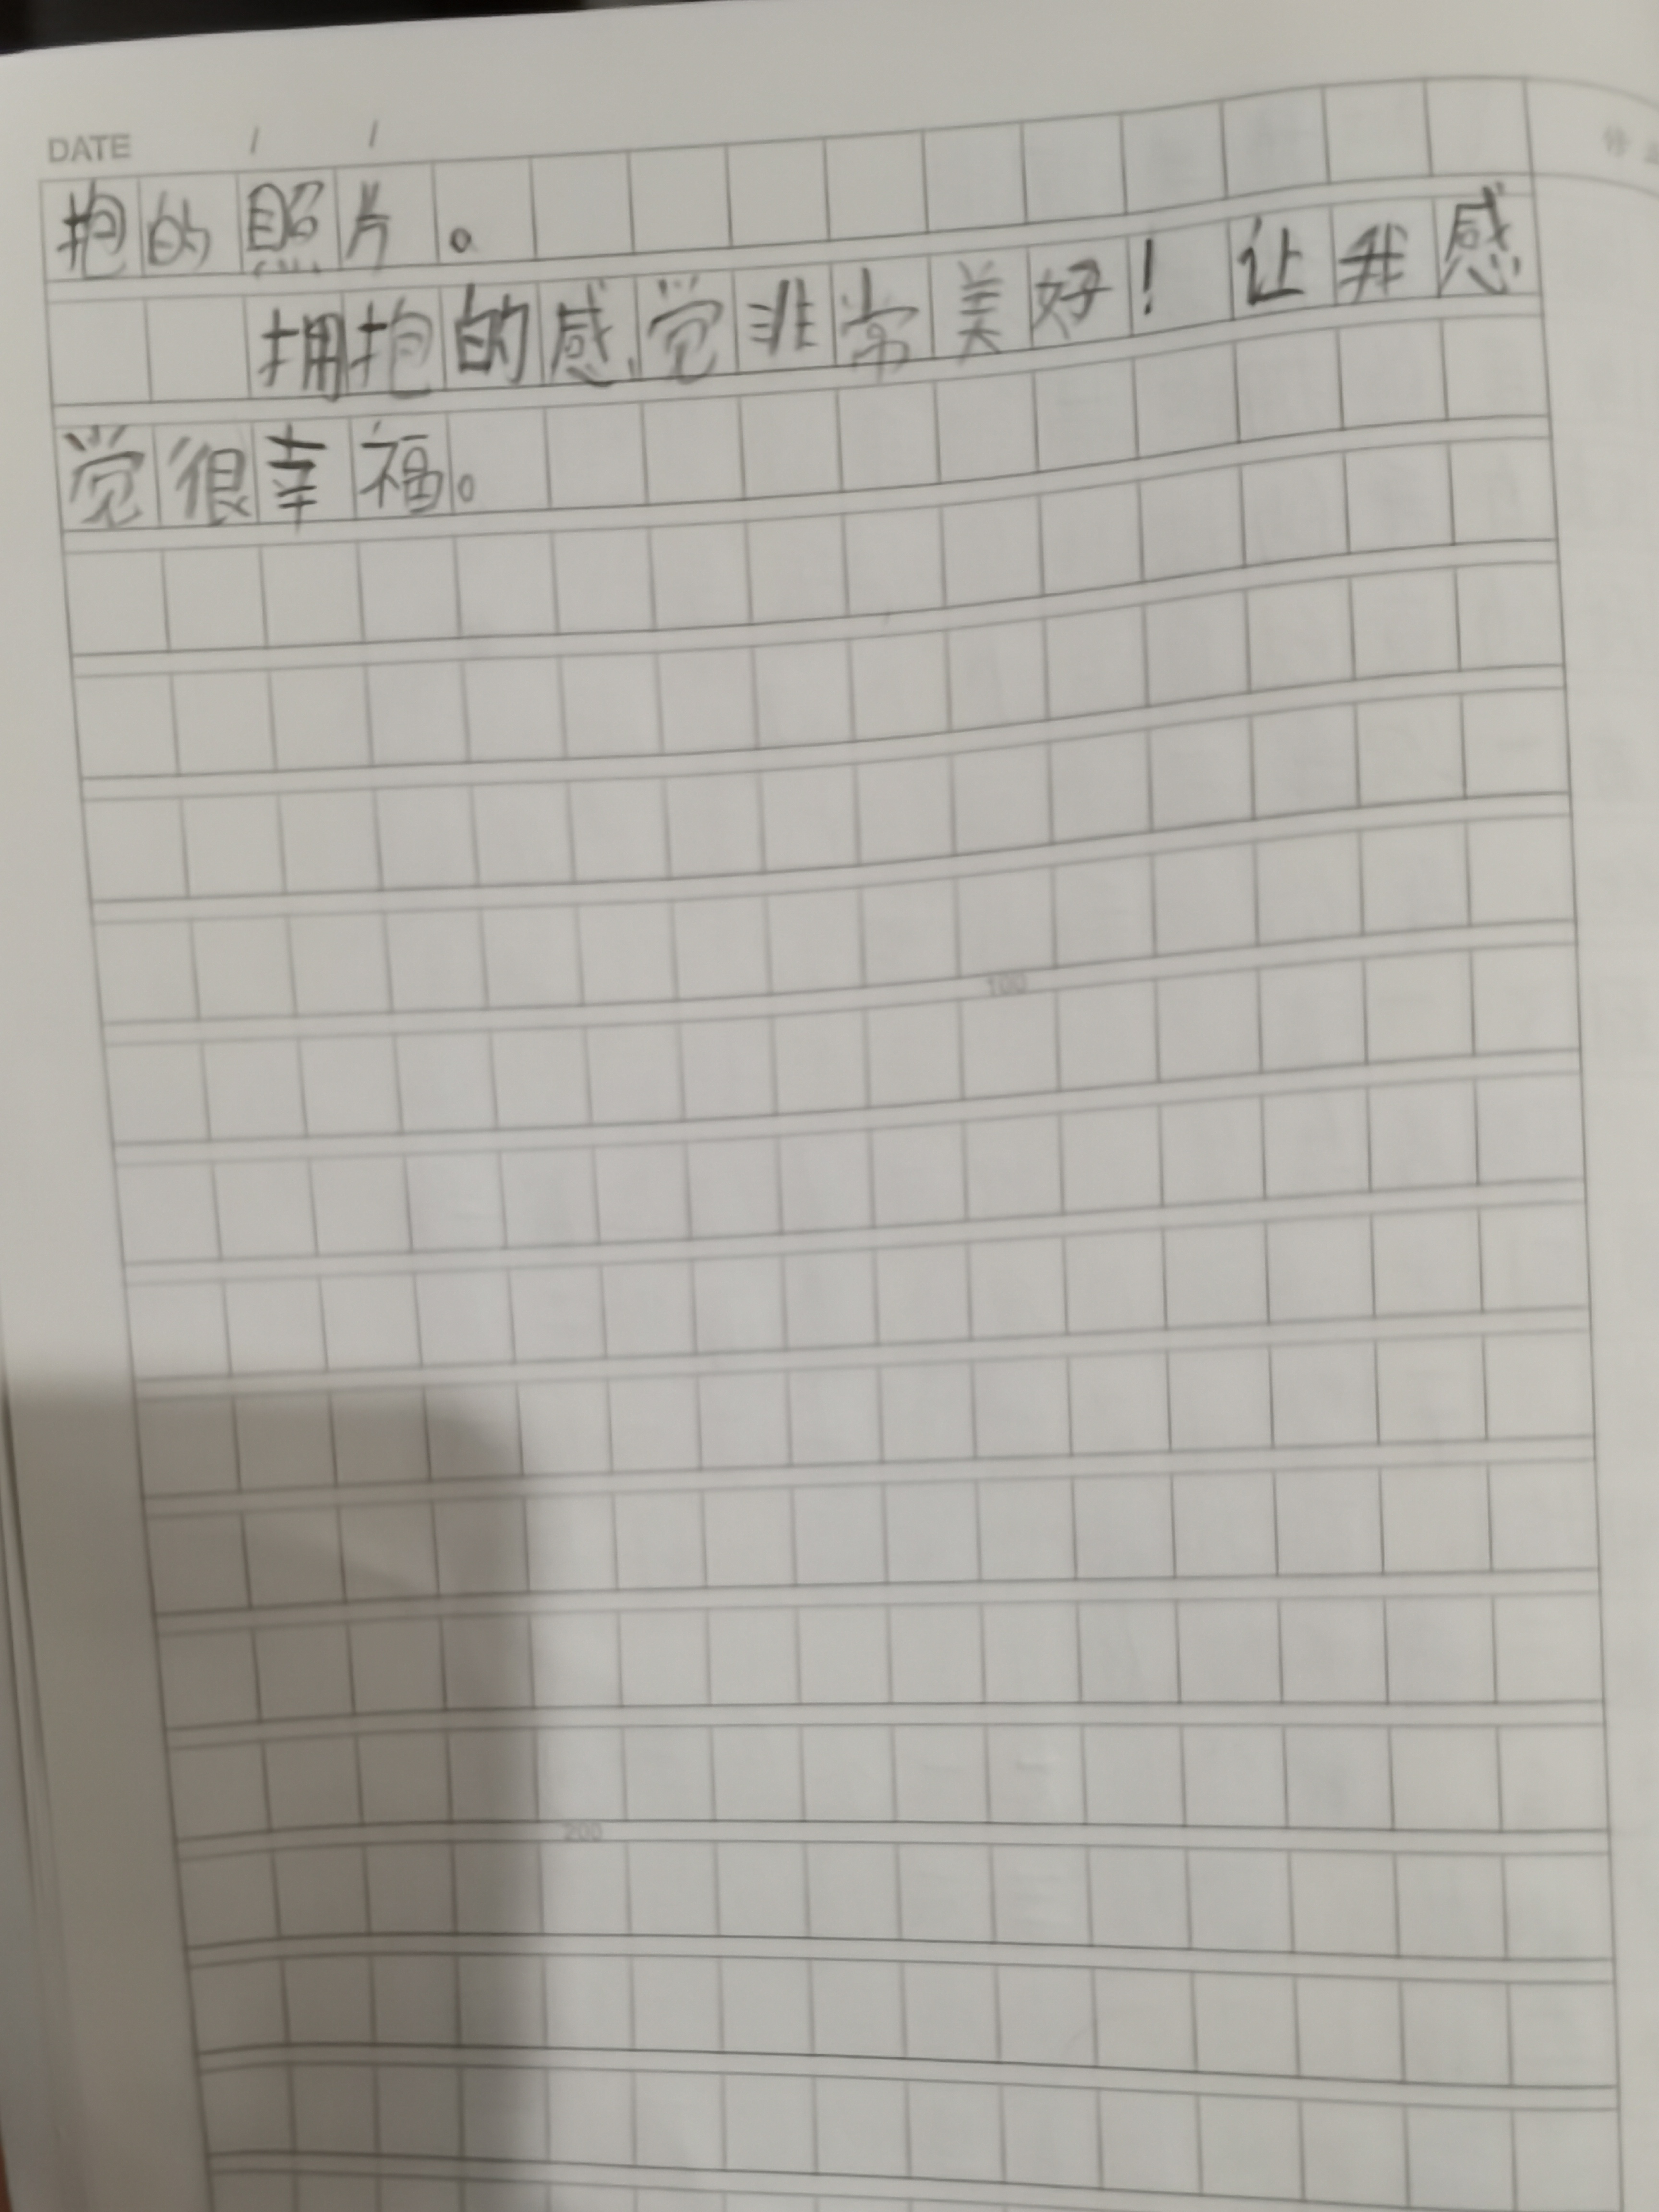 DATE / /
抱的照片。
拥抱的感觉非常美好！让我感
觉很幸福。
100
200